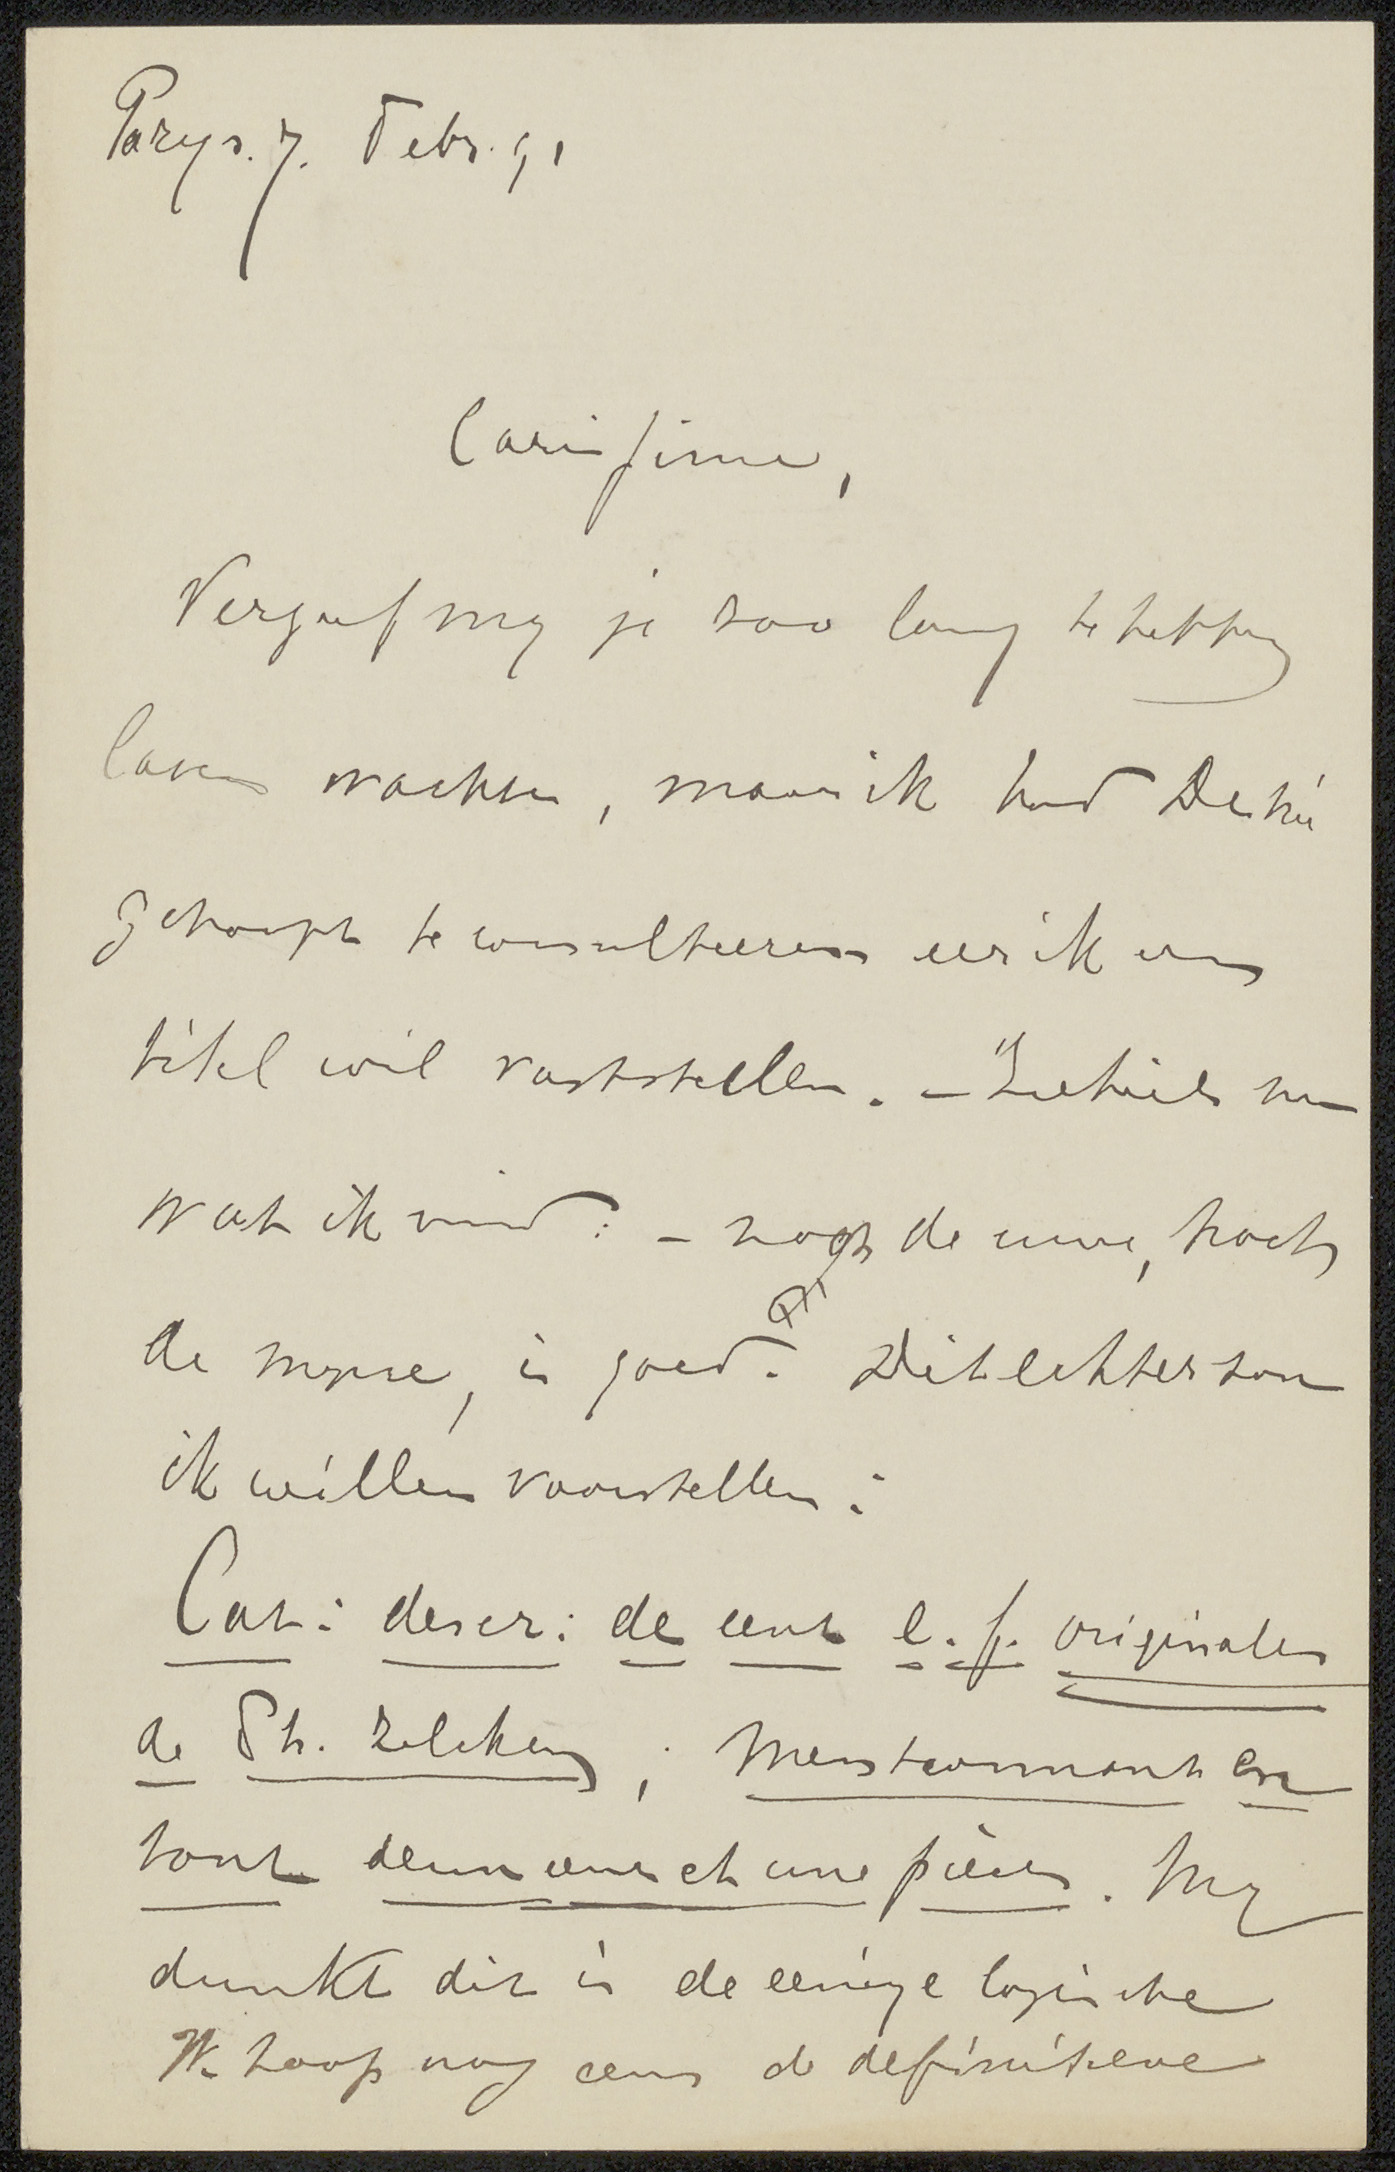 Parys. 7. Febr. 91
Carissime,
Vergeef my je zoo lang te hebben
laten wachten, maar ik had
gehoopt te consulteeren eer ik een
titel wil vaststellen. – Ziehier nu
wat ik vind: – noch de uwe, noch
de myne, is goed. Dit echter zou
ik willen voorstellen:
Cat: descr: de eaux e. f. originales
de Ph. Zilcken, mentionnant en
tout une et une pièces. My
dunkt dit is de eenige logische
Ik hoop nog eens de definitieve